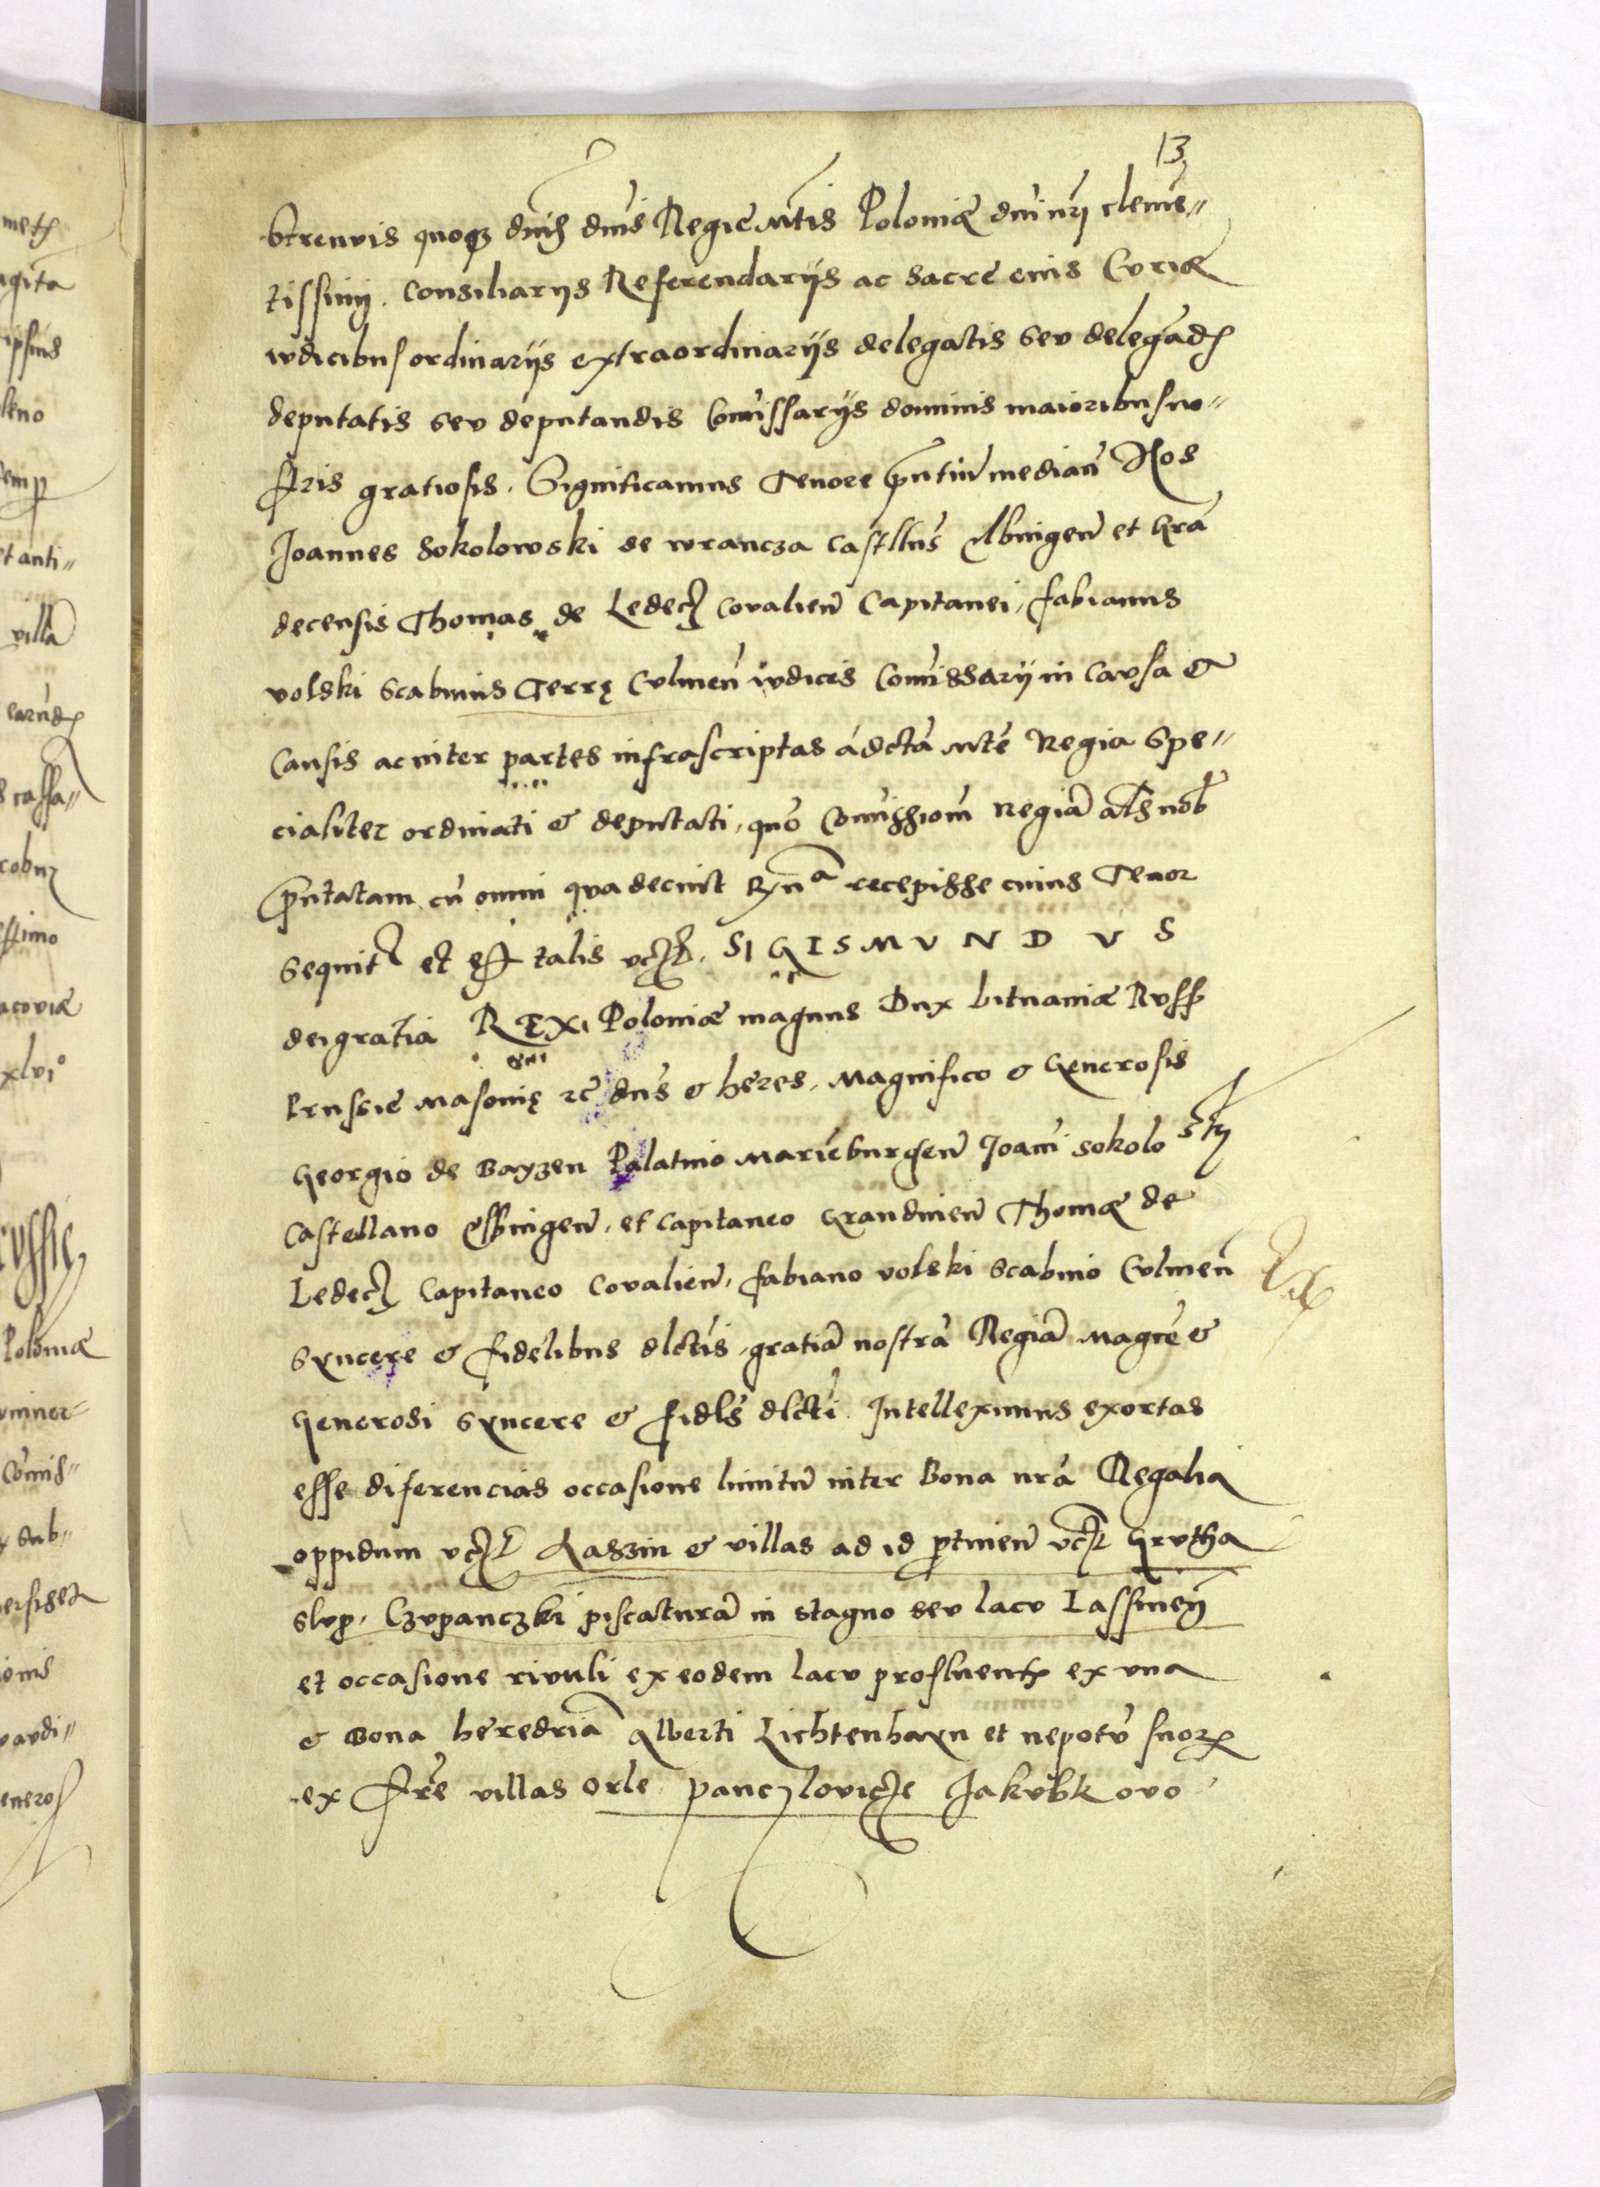 13
Strenuis quoqz dnis dnis Regie Mtis Poloniæ dni nri clemē„
tissimi. Consiliarijs Referendarijs ac Sacre eius Curiæ
iudicibus ordinarijs extraordinarijs delegatis seu delegād
deputatis seu deputandis Comissarijs dominis maioribus no„
stris gratiosis. Significamus Tenore pntiu mediañ Nos
Joannes Sokolowski de wrancza Castllnus Elbingeñ et Gra
decensis Thomas de Ledecz Covalieñ Capitanei, fabianus
volski Scabinus Terrę Culmeñ iudices Comissarij in Causa &
Causis ac inter partes infrascriptas a dcta Mte Regia Spe„
cialiter ordinati & deputati, quo Comissiom Regiã als nob
pntatam cu omni qua decuit Rna recepisse cuius Tenor
sequit et est talis vcz. SIGISMVNDVS
dei gratia REX Poloniæ magnus Dux Lituaniæ Russ
Prussie Masovię zc dns & heres. Magnifico & Generosis
Georgio de Bayzen Palatino Marieburgeñ Joañi Sokolo sky
Castellano Elbingeñ, et Capitaneo Grandineñ Thomæ de
Ledecz Capitaneo Covalieñ, fabiano volski Scabino Culmeñ
Syncere & fidelibus dlctis, gratiã nostrã Regiã Magce &
Generosi Syncere & fidls dlcti. Intelleximus exortas
esse diferencias occasione limitu inter Bona nrã Regalia
oppidum vcz Laszin & villas ad id ptineñ vcz Grutha
Slup, Czupanczki piscaturã in stagno seu lacu Lassineñ
et occasione rivuli ex eodem lacu profluent ex vna
& Bona heredriã Alberti Lichtenhayn et nepotu suor
ex fre villas Orle panczlovicze Jakubkovo